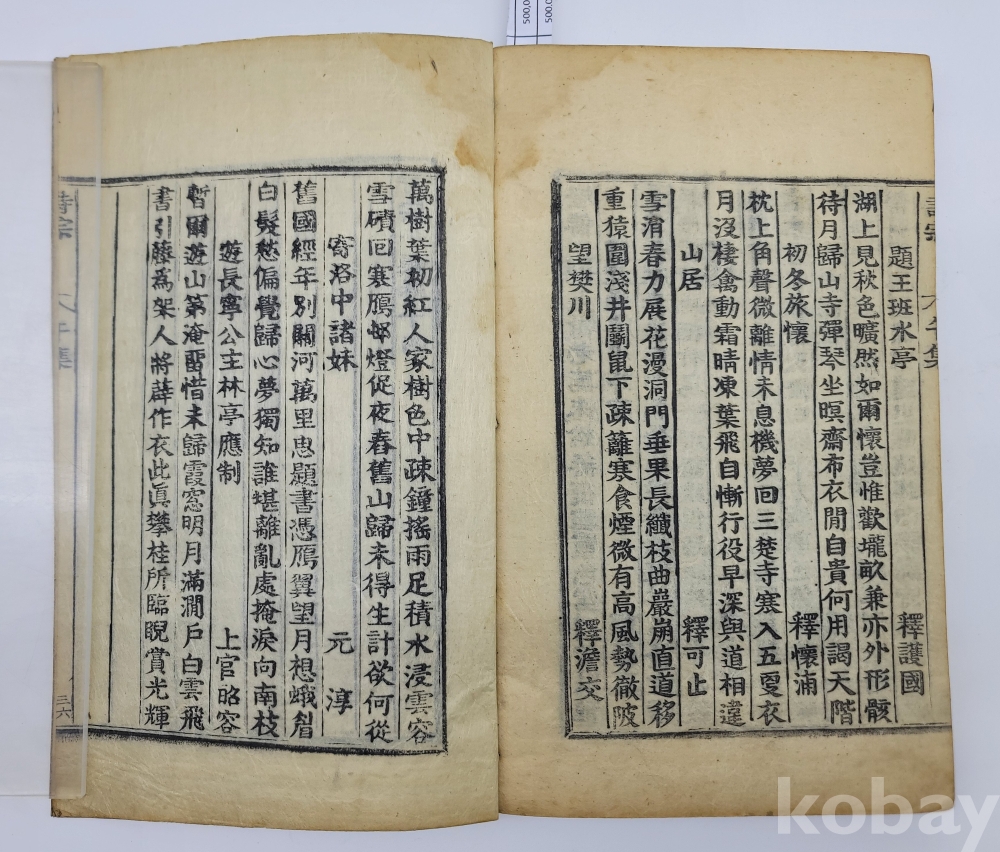 題王班水亭 釋護國
湖上見秋色曠然如爾懷豈惟歡壠畝兼亦外形骸
待月歸山寺彈琴坐暝齋布衣閒自貴何用謁天階
初冬旅懷 釋懷浦
枕上角聲微離情未息機夢回三楚寺寒入五更衣
月沒棲禽動霜晴凍葉飛自慚行役早深與道相違
山居 釋可止
雪消春力展花漫洞門垂果長纖枝曲巖崩直道移
重猿圍淺井鬪鼠下疎籬寒食煙微有高風勢徹陂
望樊川 釋澹交
萬樹葉初紅人家樹色中疎鐘搖雨足積水浸雲容
雪磧回寒鴈邨燈促夜舂舊山歸未得生計欲何從
寄洛中諸妹 元淳
舊國經年別關河萬里思題書憑鴈翼望月想蛾眉
白髮愁偏覺歸心夢獨知誰堪離亂處掩淚向南枝
遊長寧公主林亭應制 上官昭容
暫爾遊山第淹留惜未歸霞窓明月滿澗戶白雲飛
書引藤爲架人將薜作衣此眞攀桂所臨睨賞光輝
詩宗
三六
kobay